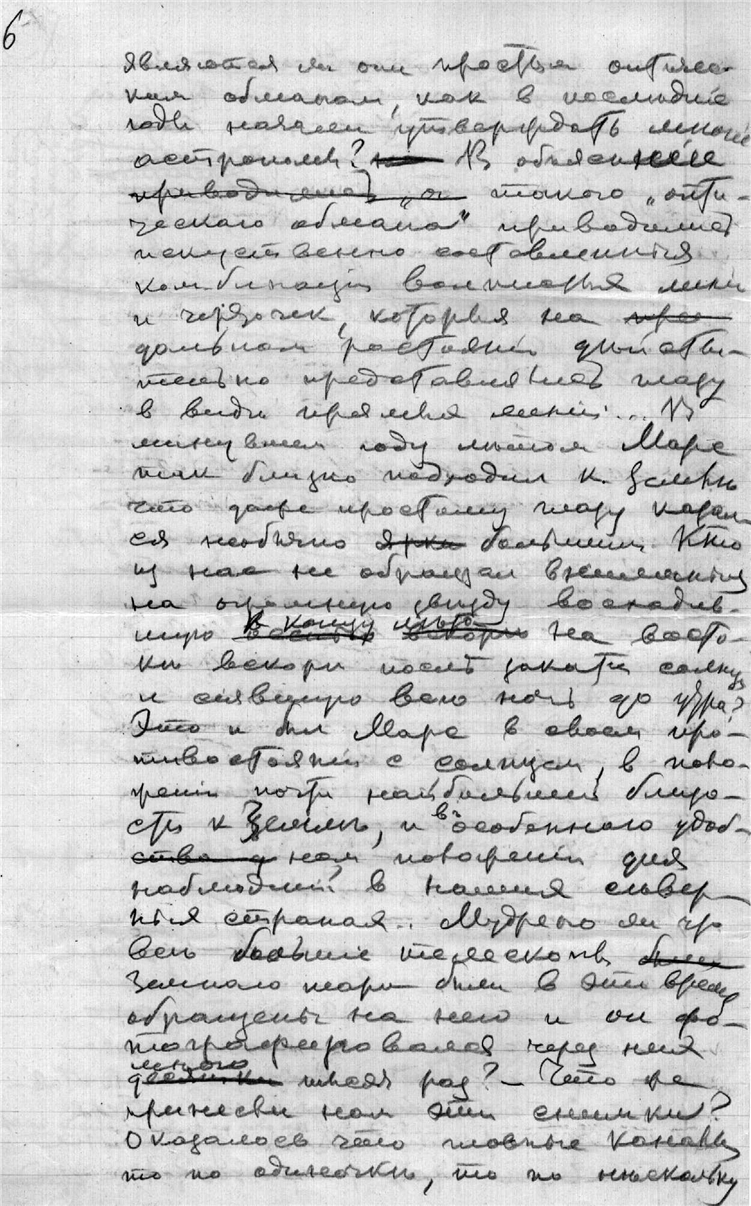 6
являются ли они простым оптичес-
ким обманом, как в последние
годы начали утверждать многие
астрономы? В объяснение
приводились "о такого „опти-
ческаго обмана" приводились
искуственно составленныя
комбинации волнистых линий
и черточек, которыя на
дальном растоянии действи-
тельно представлялись глазу
в виде прямых линий... В
минувшем году летом Марс
так близко подходил к Земле
что даже простому глазу казал-
ся необычно ярким большим. Кто
из нас не обращал внимания
на огромную звезду восходив-
к концу лета
шую на восто-
ке вскоре после заката солнца
и сиявшую всю ночь до утра?
Это и был Марс в своем про-
тивостоянии с солнцем, в поло-
жении почти наибольшей близо-
сти к Земле, и в особенного удоб-
ства ном положении для
наблюдений в наших север-
ных странах.. Мудрено ли что
все большие телескопы были
Земного шара были в это время
обращены на него и он фо-
тографировался через них
много
десятки тысяч раз? – Что же
принесли нам эти снимки?
Оказалось что главные каналы
то по одиночке, то по нескольку